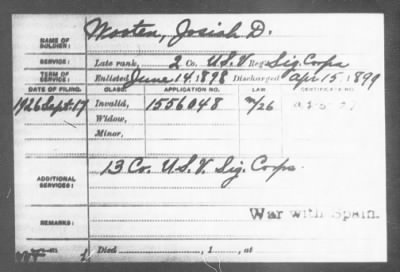 NAME OF SOLDIER: Wooten, Josiah D.
SERVICE: Late rank, 2 Co. U.S.V. Reg't Sig. Corps
TERM OF SERVICE: Enlisted June 14, 1898 Discharged Apr 15, 1899
DATE OF FILING. CLASS. APPLICATION NO. LAW. CERTIFICATE NO.
1926 Sept. 17 Invalid, 1556048
Widow,
Minor,
ADDITIONAL SERVICES: 13 Co. U.S.V. Sig. Corps.
War with Spain.
REMARKS:
Died , 1 , at